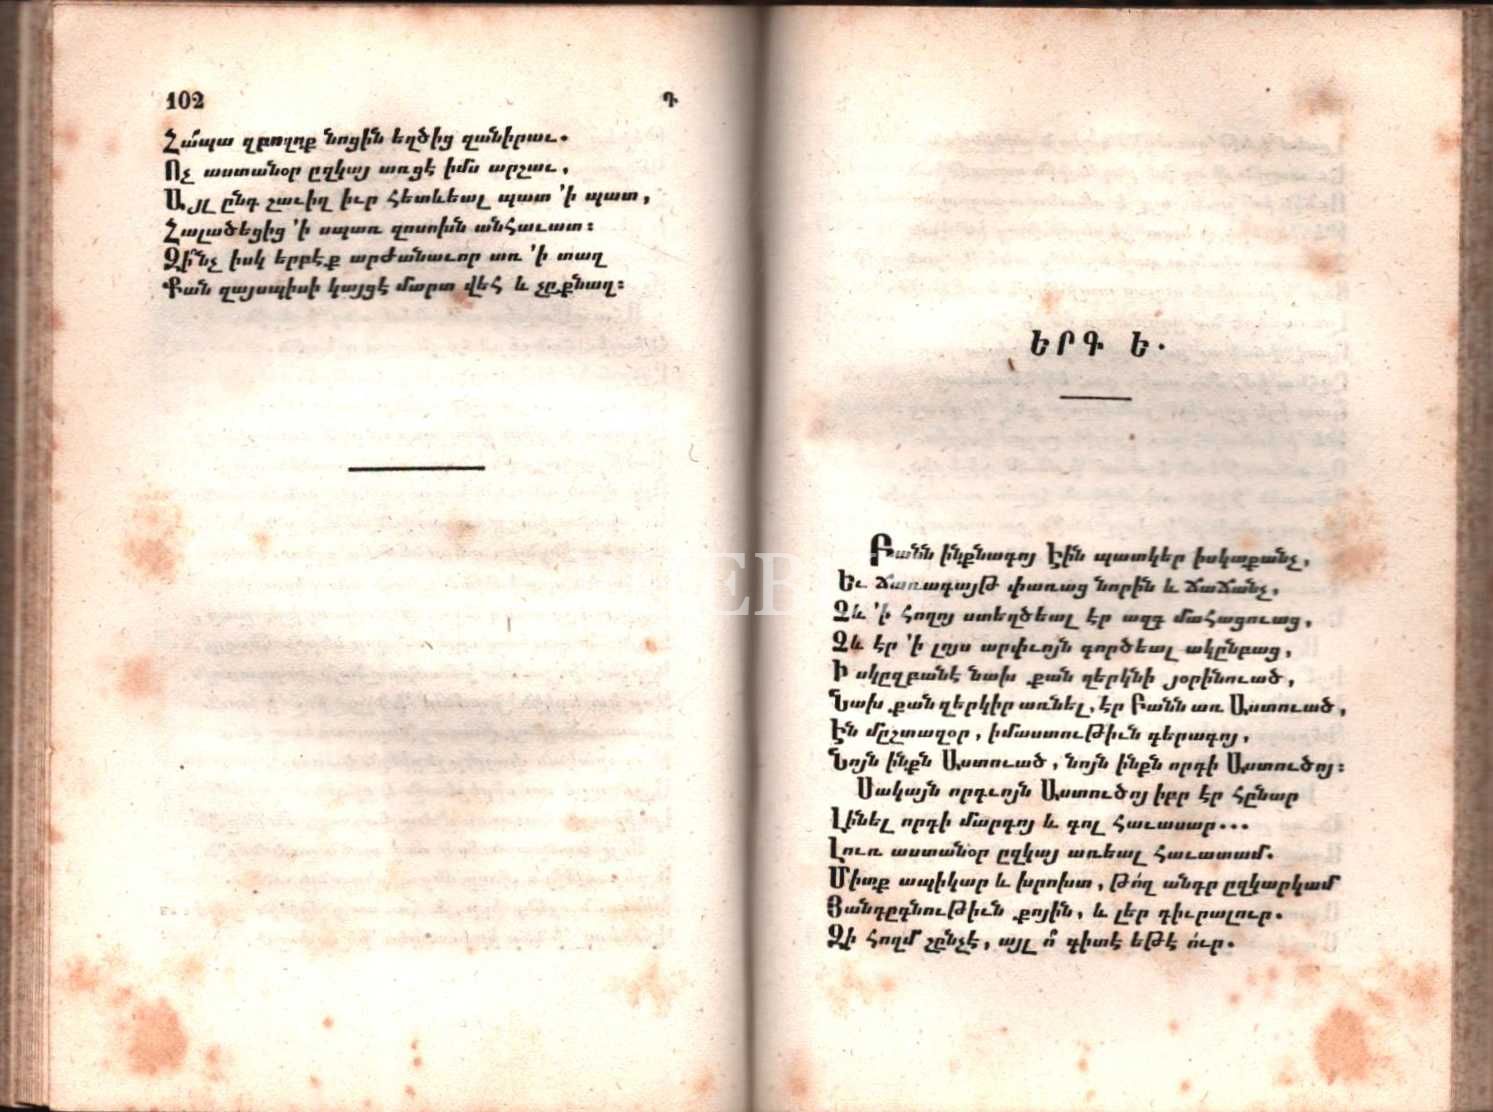 102
Դ
Հա՛պա զբողոք նոցին եղծից զանիրաւ.
Ոչ աստանօր ըզկայ առցէ իմս արշաւ,
Այլ ընդ շաւիղ իւր հետևեալ պատ ՚ի պատ,
Հալածեցից ՚ի սպառ զոսոխն անհաւատ։
Զի՞նչ իսկ երբէք արժանաւոր առ ՚ի տաղ
Քան զայսպիսի կայցէ մարտ վեհ և չըքնաղ։
ԵՐԳ Ե.
Բանն ինքնագոյ Էին պատկեր իսկաքանչ,
Եւ ճառագայթ փառաց նորին և ճաճանչ,
Չև ՚ի հողոյ ստեղծեալ էր ազգ մահացուաց,
Չև էր ՚ի լոյս արփւոյն գործեալ ակընբաց,
Ի սկըզբանէ նախ քան զերկնի յօրինուած,
Նախ քան զերկիր առնել, էր Բանն առ Աստուած,
Էն մըշտազօր, իմաստութիւն գերագոյ,
Նոյն ինքն Աստուած, նոյն ինքն որդի Աստուծոյ։
Սակայն որդւոյն Աստուծոյ իբր էր հընար
Լինել որդի մարդոյ և գոլ հաւասար...
Լուռ աստանօր ըզկայ առեալ հաւատամ.
Միտք ապիկար և խրոխտ, թո՛ղ անդր ըզկարկամ
Յանդըգնութիւն քոյին, և լեր դիւրալուր.
Զի հողմ շընչէ, այլ ո՞ գիտէ եթէ ո՛ւր.